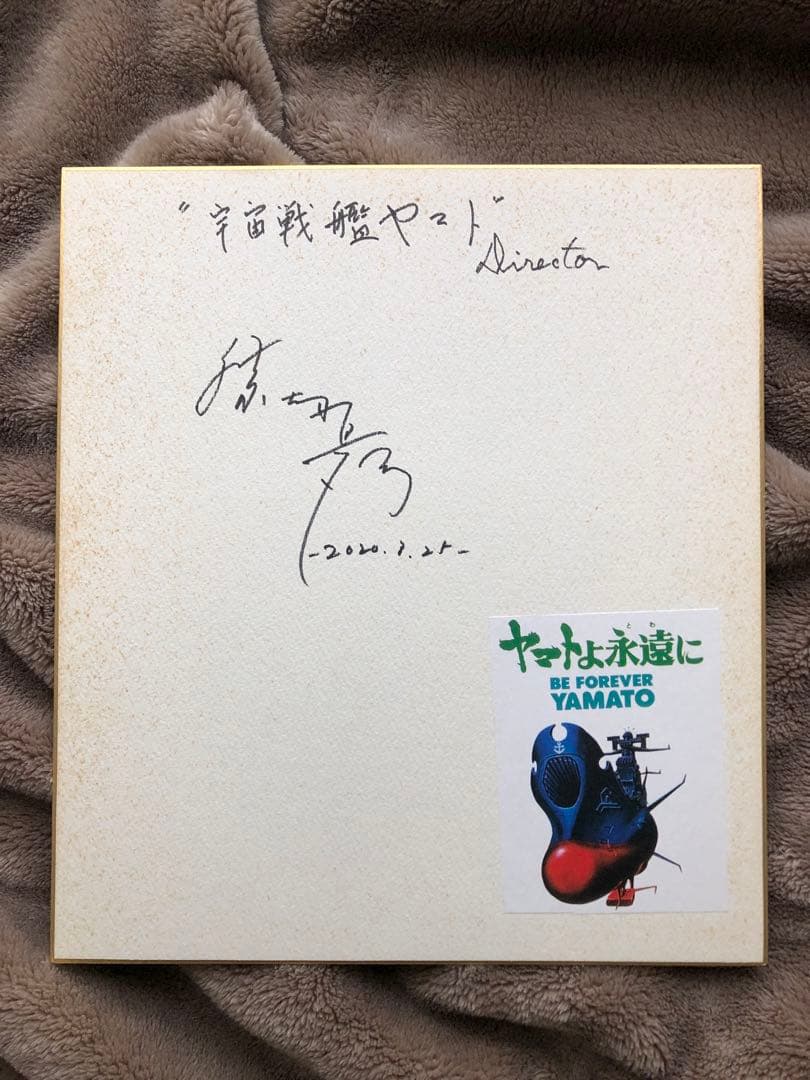 "宇宙戦艦ヤマト"
Director
-2020.3.25-
とわ
ヤマトよ永遠に
BE FOREVER
YAMATO